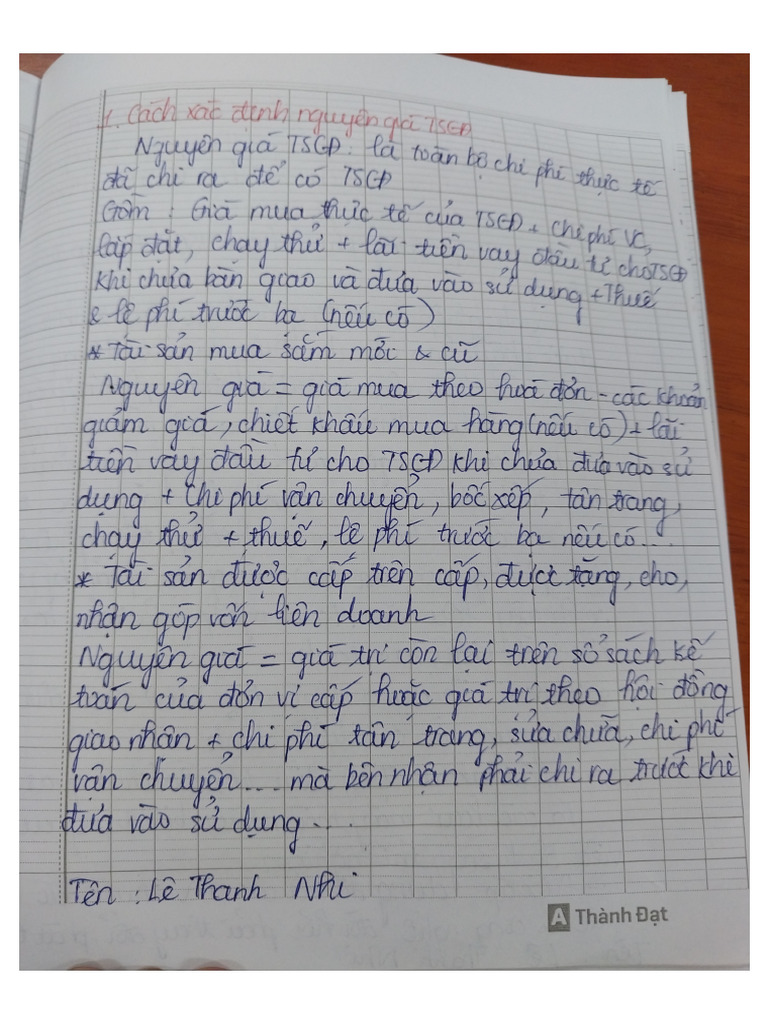 1. Cách xác định nguyên giá TSCĐ
Nguyên giá TSCĐ: là toàn bộ chi phí thực tế
đã chi ra để có TSCĐ
Gồm: Giá mua thực tế của TSCĐ + chi phí VC,
lắp đặt, chạy thử + lãi tiền vay đầu tư cho TSCĐ
khi chưa bàn giao và đưa vào sử dụng + Thuế
& lệ phí trước bạ (nếu có)
* Tài sản mua sắm mới & cũ
Nguyên giá = giá mua theo hoá đơn - các khoản
giảm giá, chiết khấu mua hàng (nếu có) + lãi
tiền vay đầu tư cho TSCĐ khi chưa đưa vào sử
dụng + Chi phí vận chuyển, bốc xếp, tân trang,
chạy thử + thuế, lệ phí trước bạ nếu có...
* Tài sản được cấp trên cấp, được tặng, cho,
nhận góp vốn liên doanh
Nguyên giá = giá trị còn lại trên sổ sách kế
toán của đơn vị cấp hoặc giá trị theo hội đồng
giao nhận + chi phí tân trang, sửa chữa, chi phí
vận chuyển... mà bên nhận phải chi ra trước khi
đưa vào sử dụng...
Tên: Lê Thanh Nhi
A Thành Đạt